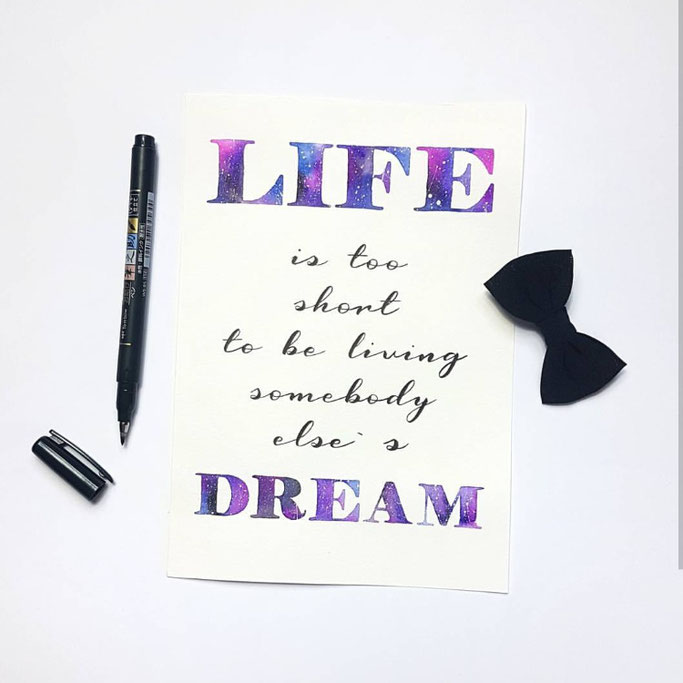 LIFE
is too
short
to be living
somebody
else`s
DREAM